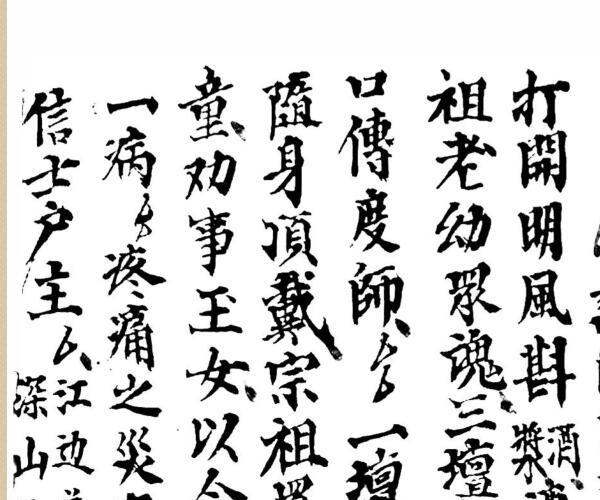 打開明風斟酒漿
祖老幼眾魂三壇
口傳度師厶一壇
隨身頂戴宗祖
童劝事玉女以
一病疼痛之災
信士户主厶江边
深山